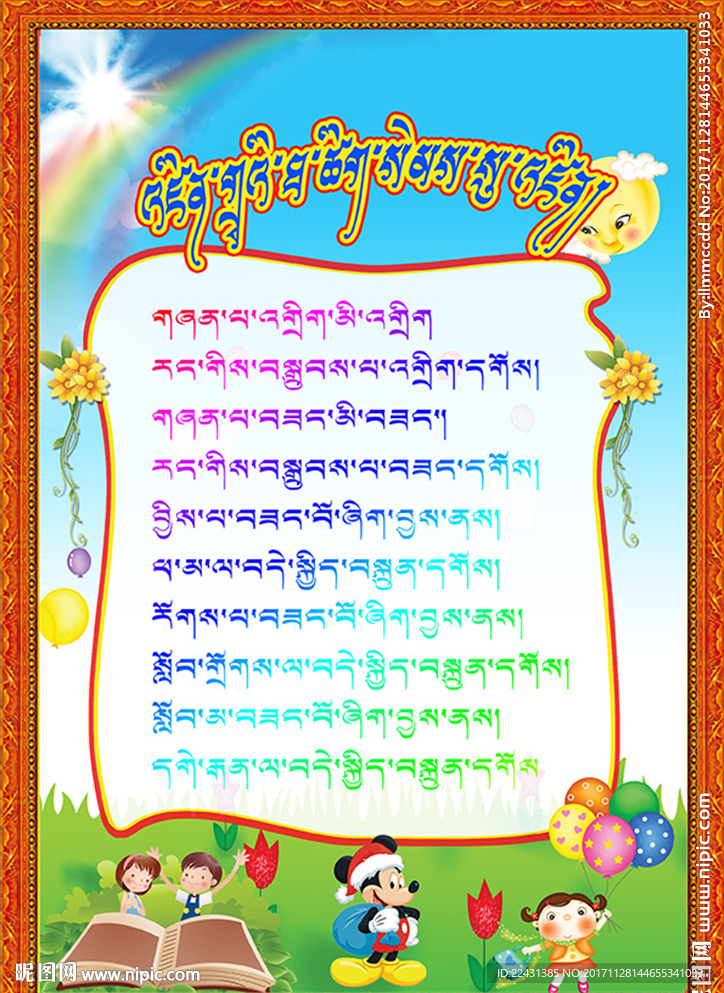 འཛིན་གྲྭའི་ཐ་ཚིག་སེམས་སུ་འཛིན།
གཞན་པ་འགྲིག་མི་འགྲིག
རང་གིས་བསྒྲུབས་པ་འགྲིག་དགོས།
གཞན་པ་བཟང་མི་བཟང་།
རང་གིས་བསྒྲུབས་པ་བཟང་དགོས།
བྱིས་པ་བཟང་པོ་ཞིག་བྱས་ནས།
ཕ་མ་ལ་བདེ་སྐྱིད་བསྐྲུན་དགོས།
རོགས་པ་བཟང་པོ་ཞིག་བྱས་ནས།
སློབ་གྲོགས་ལ་བདེ་སྐྱིད་བསྐྲུན་དགོས།
སློབ་མ་བཟང་པོ་ཞིག་བྱས་ནས།
དགེ་རྒན་ལ་བདེ་སྐྱིད་བསྐྲུན་དགོས
By:llmmccdd No:20171128144655341033
昵图网 www.nipic.com
昵图网 www.nipic.com
ID:22431385 NO:20171128144655341033